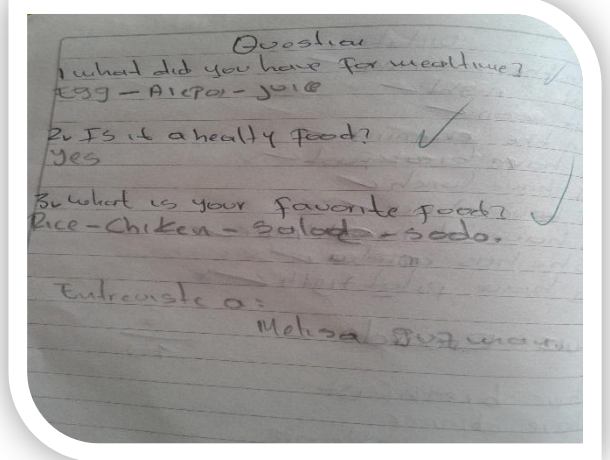 Question
1 what did you have for mealtime?
Egg - Arepa - juice
2. Is it a healty food?
yes
3. what is your favorite food?
Rice - Chiken - salad - soda.
Entrevista a:
Melisa guzman